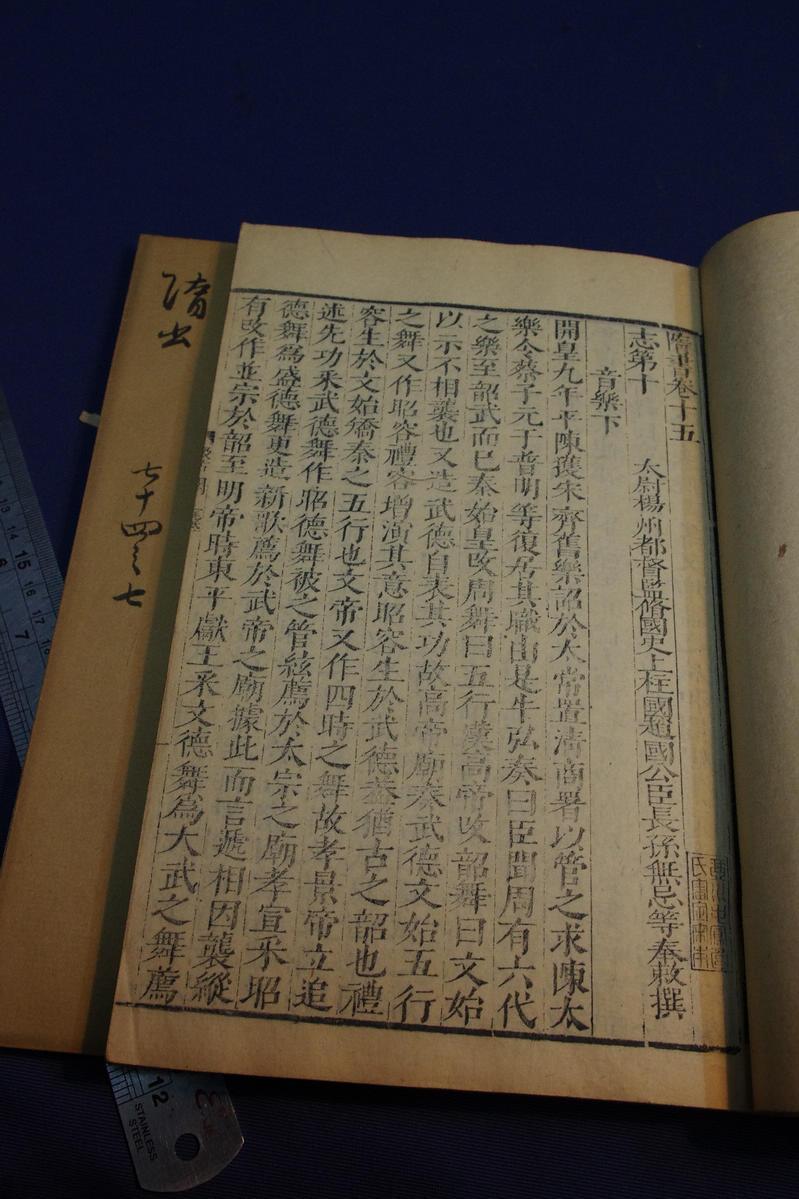 隋書卷十五
志第十
太尉楊州都督監脩國史上柱國趙國公臣長孫無忌等奉敕撰
音樂下
開皇九年平陳獲宋齊舊樂詔於太常置清商署以管之求陳太
樂令蔡子元于普明等復居其職由是牛弘奏曰臣聞周有六代
之樂至韶武而已秦始皇改周舞曰五行漢高帝改韶舞曰文始
以示不相襲也又造武德自表其功故高帝廟奏武德文始五行
之舞又作昭容禮容增演其意昭容生於武德蓋猶古之韶也禮
容生於文始矯秦之五行也文帝又作四時之舞故孝景帝立追
述先功采武德舞作昭德舞被之管絃薦於太宗之廟孝宣采昭
德舞為盛德舞更造新歌薦於武帝之廟據此而言遞相因襲縱
有改作並宗於韶至明帝時東平獻王采文德舞為大武之舞薦
隋书
七十四之七
15
16
17
7
12
3
STAINLESS
STEEL